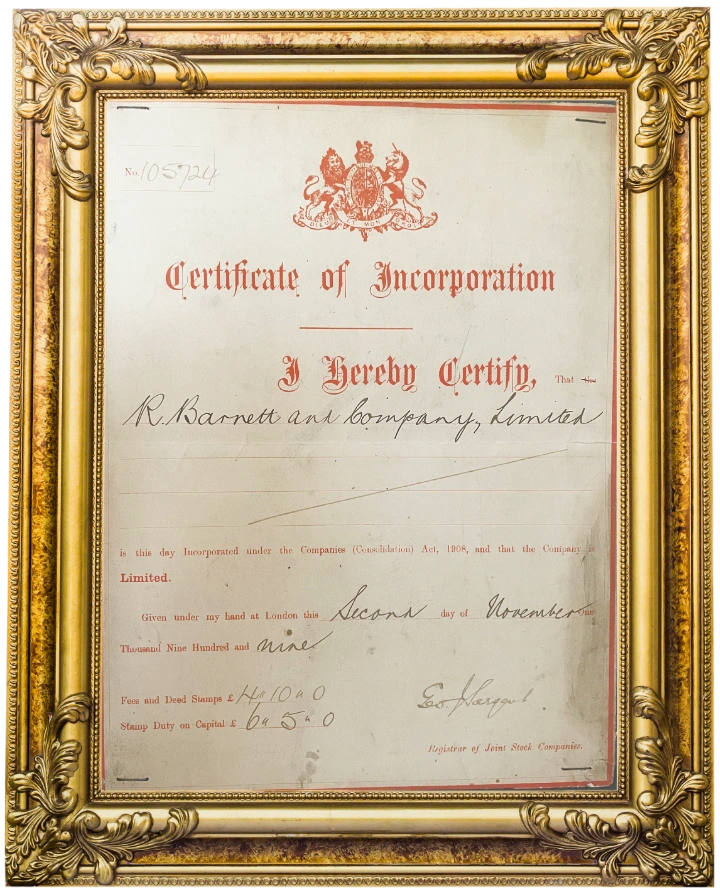 No. 105724
DIEU ET MON DROIT
Certificate of Incorporation
I Hereby Certify, That the
R. Barnett and Company, Limited
is this day Incorporated under the Companies (Consolidation) Act, 1908, and that the Company is
Limited.
Given under my hand at London this Second day of November One
Thousand Nine Hundred and nine
Fees and Deed Stamps £ 4 " 10 " 0
Stamp Duty on Capital £ 6 " 5 " 0
Geo. J. Sargent.
Registrar of Joint Stock Companies.